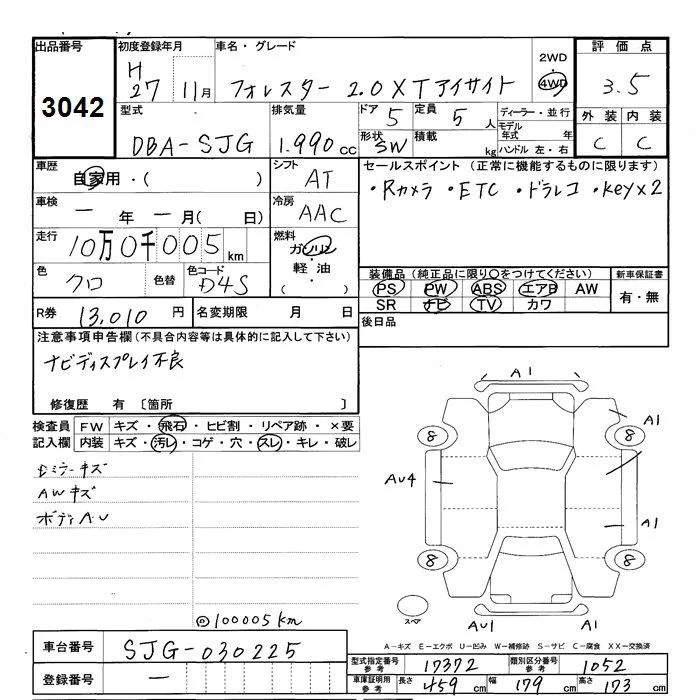 出品番号 初度登録年月 車名・グレード 2WD 評価点
3042 H27 11月 フォレスター 2.0XTアイサイト 4WD 3.5
型式 排気量 ドア 5 定員 5人 ディーラー・並行 外装 内装
DBA-SJG 1.990cc 形状 SW 積載 kg モデル年式 年 C C
ハンドル 左・右
車歴 自家用・( ) シフト AT セールスポイント (正常に機能するものに限ります)
・Rカメラ ・ETC ・ドラレコ ・Key×2
車検 ー年 ー月( 日) 冷房 AAC
走行 10万0千005km 燃料 ガソリン
軽油
( )
色 クロ 色替 色コード D4S
装備品(純正品に限り○をつけてください) 新車保証書
PS PW ABS エアB AW 有・無
SR ナビ TV カワ
R券 13,010円 名変期限 月 日 後日品
注意事項申告欄(不具合内容等は具体的に記入して下さい)
ナビディスプレイ不良
修復歴 有 〔箇所 〕
検査員 FW キズ・飛石・ヒビ割・リペア跡・×要
記入欄 内装 キズ・汚レ・コゲ・穴・スレ・キレ・破レ
ミラーキズ
AWキズ
ボディA.U
◎100005km
A1
A1
8 8
AU4
A1
8 8
スペア
AU1 A1
A-キズ E-エクボ U-凹み W-補修跡 S-サビ C-腐食 XX-交換済
車台番号 SJG-030225
型式指定番号 参考 17372 類別区分番号 参考 1052
登録番号 ー
車庫証明用 参考 長さ 459cm 幅 179cm 高さ 173cm